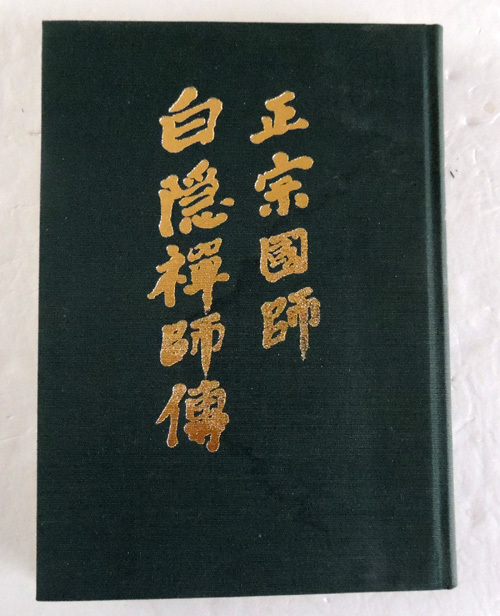 正宗國師
白隠禪師傳